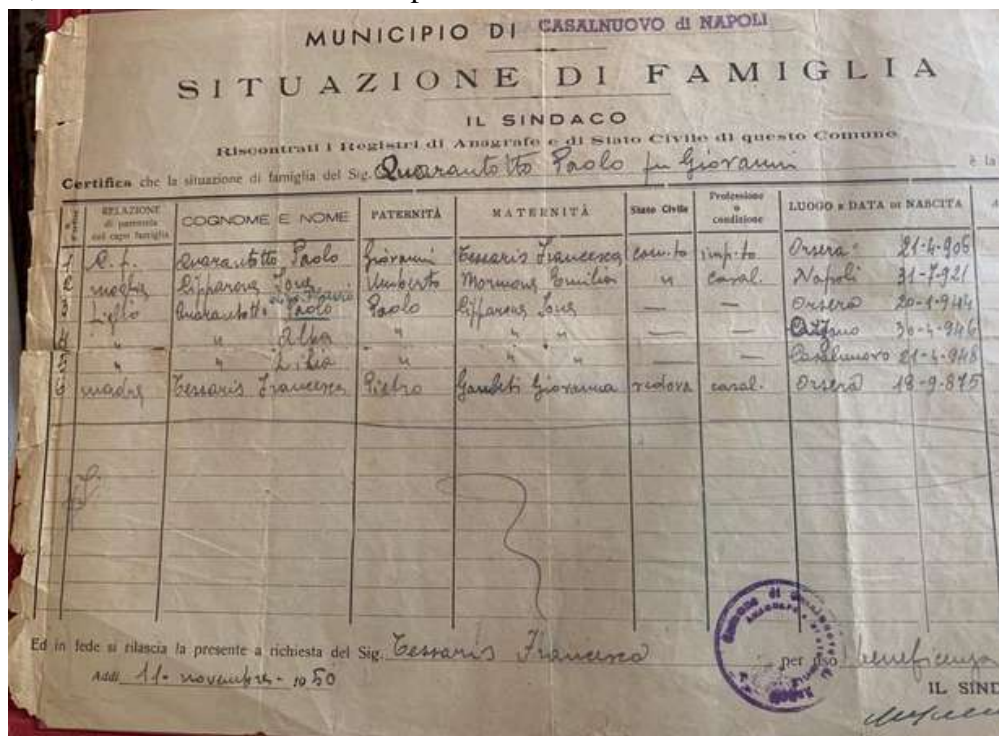 MUNICIPIO DI CASALNUOVO di NAPOLI
SITUAZIONE DI FAMIGLIA
IL SINDACO
Riscontrati i Registri di Anagrafe e di Stato Civile di questo Comune
Certifica che la situazione di famiglia del Sig. Quarantotto Paolo fu Giovanni è la
RELAZIONE di parentela col capo famiglia COGNOME E NOME PATERNITÀ MATERNITÀ Stato Civile Professione o condizione LUOGO e DATA DI NASCITA
1 C. f. Quarantotto Paolo Giovanni Tessaris Francesca Orsera 21-4-906
2 moglie Umberto Emilia " casal. Napoli 31-7-921
3 figlio Quarantotto Paolo Paolo — — Orsera 20-1-944
4 " " Alba " " " — — 30-4-946
5 " " " " " — — Casalnuovo 21-4-948
6 madre Tessaris Francesca Pietro Giovanna vedova casal. Orsera 18-9-875
Ed in fede si rilascia la presente a richiesta del Sig. Tessaris Francesca per uso beneficenza
Addì 11 - novembre - 1950
IL SIND